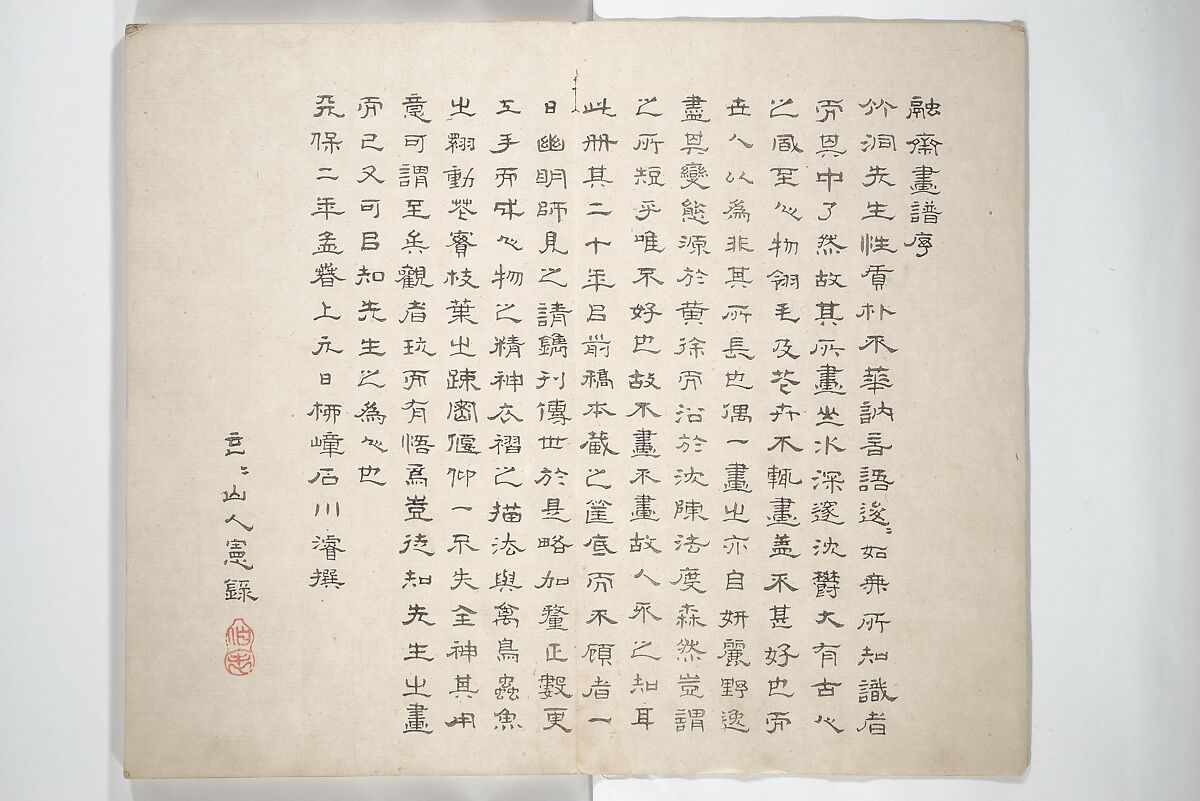 融齋畫譜序
竹洞先生性質朴不華訥言語逡〻如無所知識者
而其中了然故其所畫山水深邃沈鬱大有古人
之風至人物翎毛及花卉不輒畫蓋不甚好也而
世人以為非其所長也偶一畫之亦自妍麗野逸
盡其變態源於黄徐而沿於沈陳法度森然豈謂
之所短乎唯不好也故不畫不畫故人不之知耳
此册其二十年㠯前稿本藏之筐底而不顧者一
日幽明師見之請鐫刊傳世於是略加釐正數更
工手而成人物之精神衣褶之描法與禽鳥蟲魚
之翔動花賓枝葉之疎密偃仰一不失全神其用
意可謂至矣觀者玩而有悟焉豈徒知先生之畫
而已又可㠯知先生之為人也
天保二年孟春上元日栁嶂石川濬撰
玄〻山人憲錄